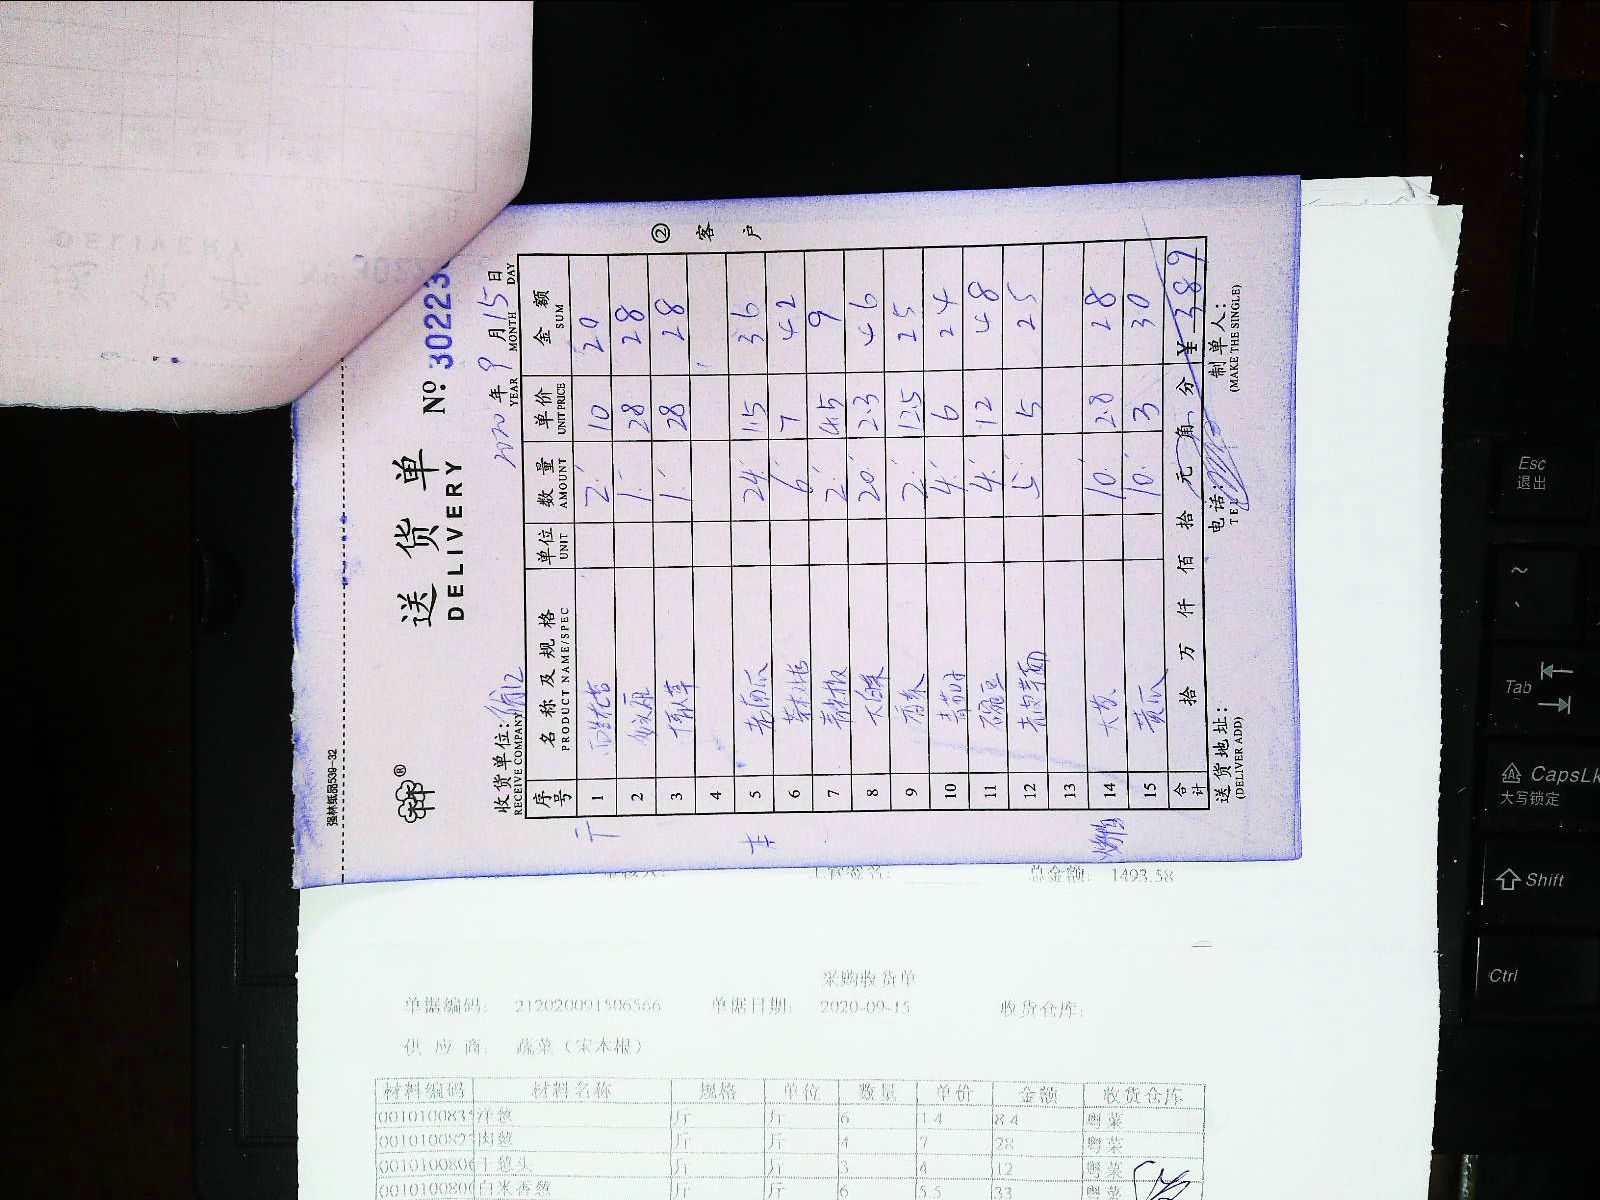 强林纸品539-32
送货单 №: 30223
DELIVERY
收货单位:
RECEIVE COMPANY
2020 年 9 月 15 日
YEAR MONTH DAY
② 客户
序号 名称及规格 单位 数量 单价 金额
PRODUCT NAME/SPEC UNIT AMOUNT UNIT PRICE SUM
1 西兰花 2 10 20
2 1 28 28
3 1 28 28
4
5 老南瓜 24 1.5 36
6 6 7 42
7 青椒 2 4.5 9
8 大白菜 20 2.3 46
9 香菜 2 12.5 25
10 4 6 24
11 4 12 48
12 5 5 25
13
14 大葱 10 2.8 28
15 黄瓜 10 3 30
合计 拾 万 仟 佰 拾 元 角 分 ¥389
送货地址: 电话: 制单人:
(DELIVER ADD) TEL (MAKE THE SINGLE)
总金额: 1493.58
采购收货单
单据编码: 212020091506566 单据日期: 2020-09-15 收货仓库:
供应商: 蔬菜（宋本根）
材料编码 材料名称 规格 单位 数量 单价 金额 收货仓库
洋葱 斤 斤 6 1.4 8.4 粤菜
肉葱 斤 斤 4 7 28 粤菜
干葱头 斤 斤 3 4 12 粤菜
白米香葱 斤 斤 6 5.5 33 粤菜
Esc
退出
~
Tab
CapsLk
大写锁定
Shift
Ctrl